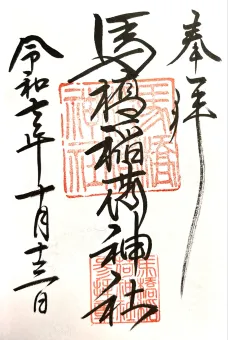 奉拝
馬橋稲荷神社
令和六年十月十三日